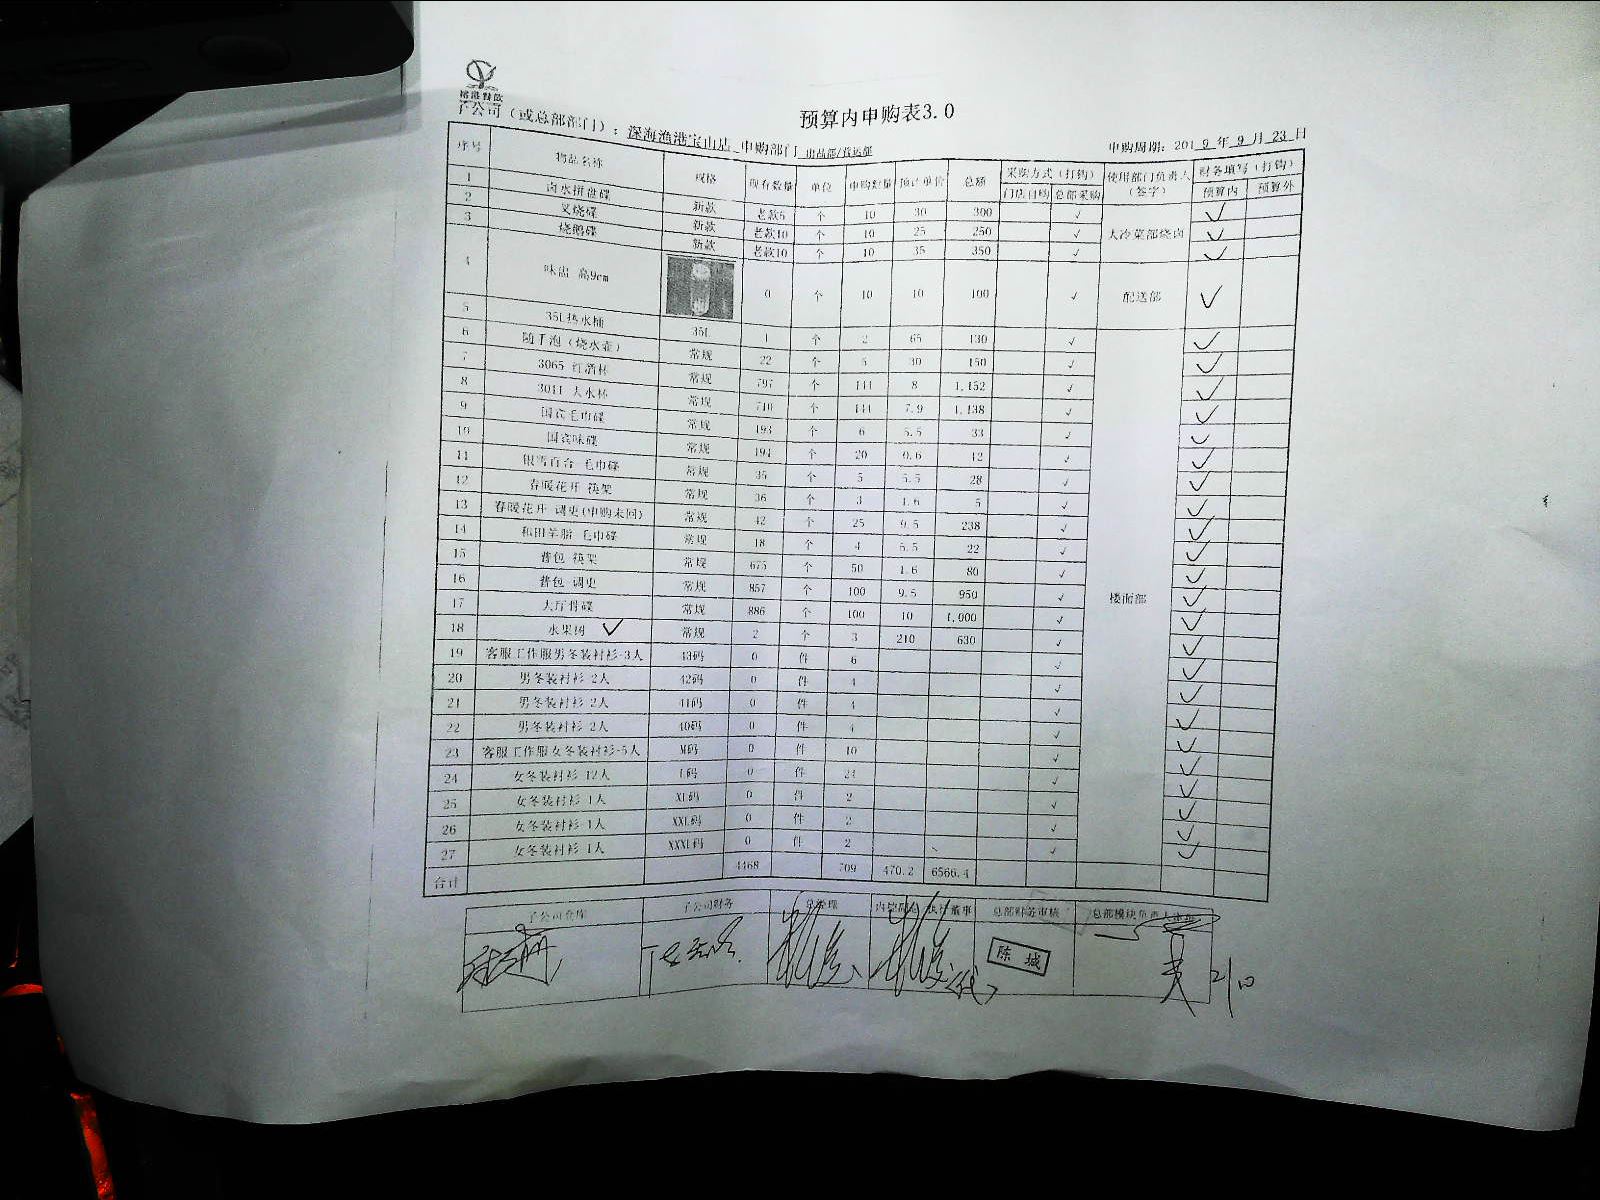 榕港餐饮
预算内申购表3.0
子公司（或总部部门）：深海渔港宝山店 申购部门 出品部/营运部 申购周期：2019年9月23日
序号 物品名称 规格 现有数量 单位 申购数量 预计单价 总额 采购方式（打钩） 使用部门负责人（签字） 财务填写（打钩）
门店自购 总部采购 预算内 预算外
1 卤水拼盘碟 新款 老款5 个 10 30 300 √ 大冷菜部烧卤 √
2 叉烧碟 新款 老款10 个 10 25 250 √ √
3 烧鹅碟 新款 老款10 个 10 35 350 √ √
4 味盅 高9cm 0 个 10 10 100 √ 配送部 √
5 35L热水桶 35L 1 个 2 65 130 √ 楼面部 √
6 随手泡（烧水壶） 常规 22 个 5 30 150 √
7 3065 红酒杯 常规 797 个 144 8 1,152 √ √
8 3011 大水杯 常规 710 个 144 7.9 1,138 √ √
9 国宾毛巾碟 常规 193 个 6 5.5 33 √ √
10 国宾味碟 常规 194 个 20 0.6 12 √ √
11 银雪百合 毛巾碟 常规 35 个 5 5.5 28 √ √
12 春暖花开 筷架 常规 36 个 3 1.6 5 √ √
13 春暖花开 调更(申购未回) 常规 42 个 25 9.5 238 √ √
14 和田羊脂 毛巾碟 常规 18 个 4 5.5 22 √ √
15 普包 筷架 常规 675 个 50 1.6 80 √ √
16 普包 调更 常规 857 个 100 9.5 950 √ √
17 大厅骨碟 常规 886 个 100 10 1,000 √ √
18 水果树 √ 常规 2 个 3 210 630 √ √
19 客服工作服男冬装衬衫-3人 43码 0 件 6 √ √
20 男冬装衬衫 2人 42码 0 件 4 √ √
21 男冬装衬衫 2人 41码 0 件 4 √ √
22 男冬装衬衫 2人 40码 0 件 4 √ √
23 客服工作服女冬装衬衫-5人 M码 0 件 10 √ √
24 女冬装衬衫 12人 L码 0 件 24 √ √
25 女冬装衬衫 1人 XL码 0 件 2 √ √
26 女冬装衬衫 1人 XXL码 0 件 2 √ √
27 女冬装衬衫 1人 XXXL码 0 件 2 √ √
合计 4468 709 470.2 6566.4
子公司仓库 子公司财务 总经理 执行董事 总部财务审核 总部模块负责人
陈城
(代)
2/10